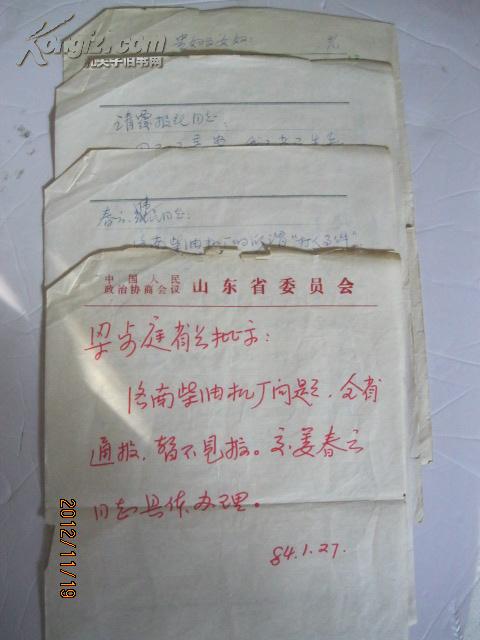 Kongfz.com
孔夫子旧书网
同志:
春云
同志:
济南柴油机厂的所谓"打人事件"
中国人民
政治协商会议 山东省委员会
梁步庭省长批示:
济南柴油机厂问题,全省
通报,暂不见报。交姜春云
同志具体办理。
84.1.27.
2012/11/19